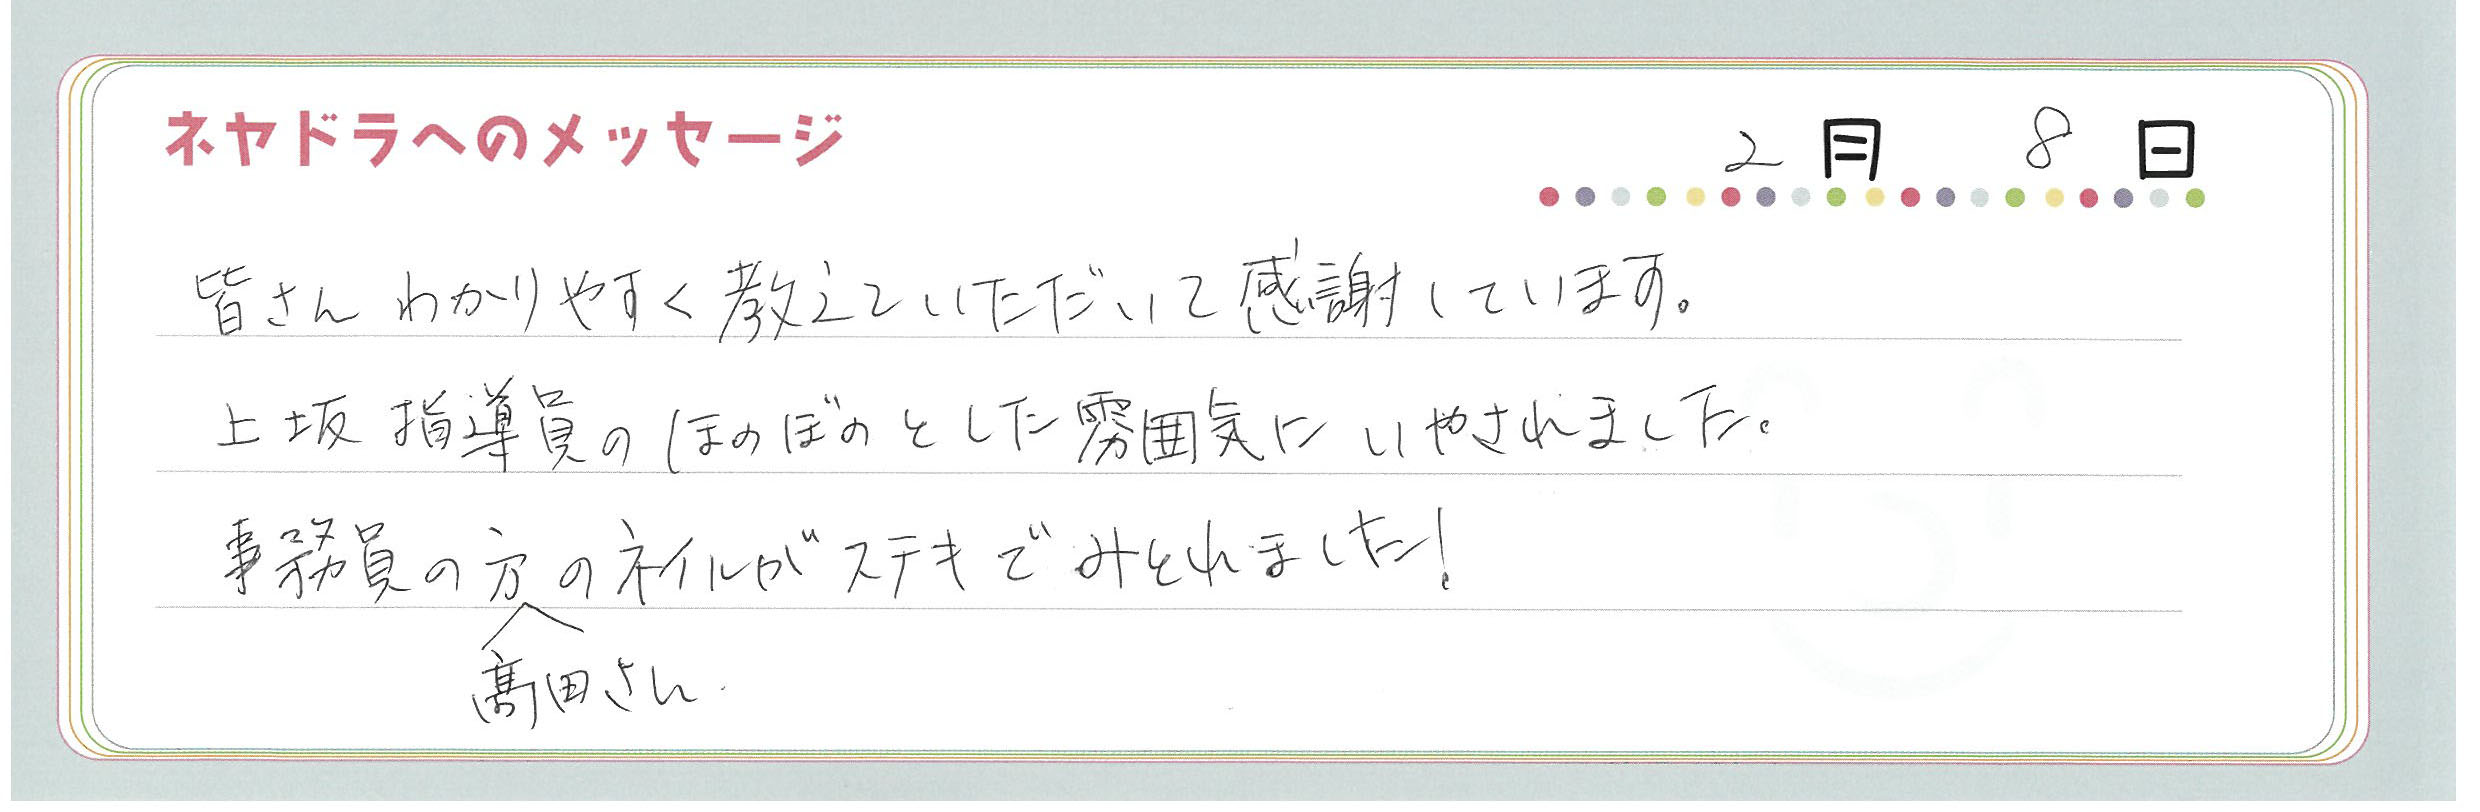 ネヤドラへのメッセージ
2月 8日
皆さん わかりやすく教えていただいて感謝しています。
上坂指導員のほのぼのとした雰囲気にいやされました。
事務員の方のネイルがステキでみとれました!
髙田さん